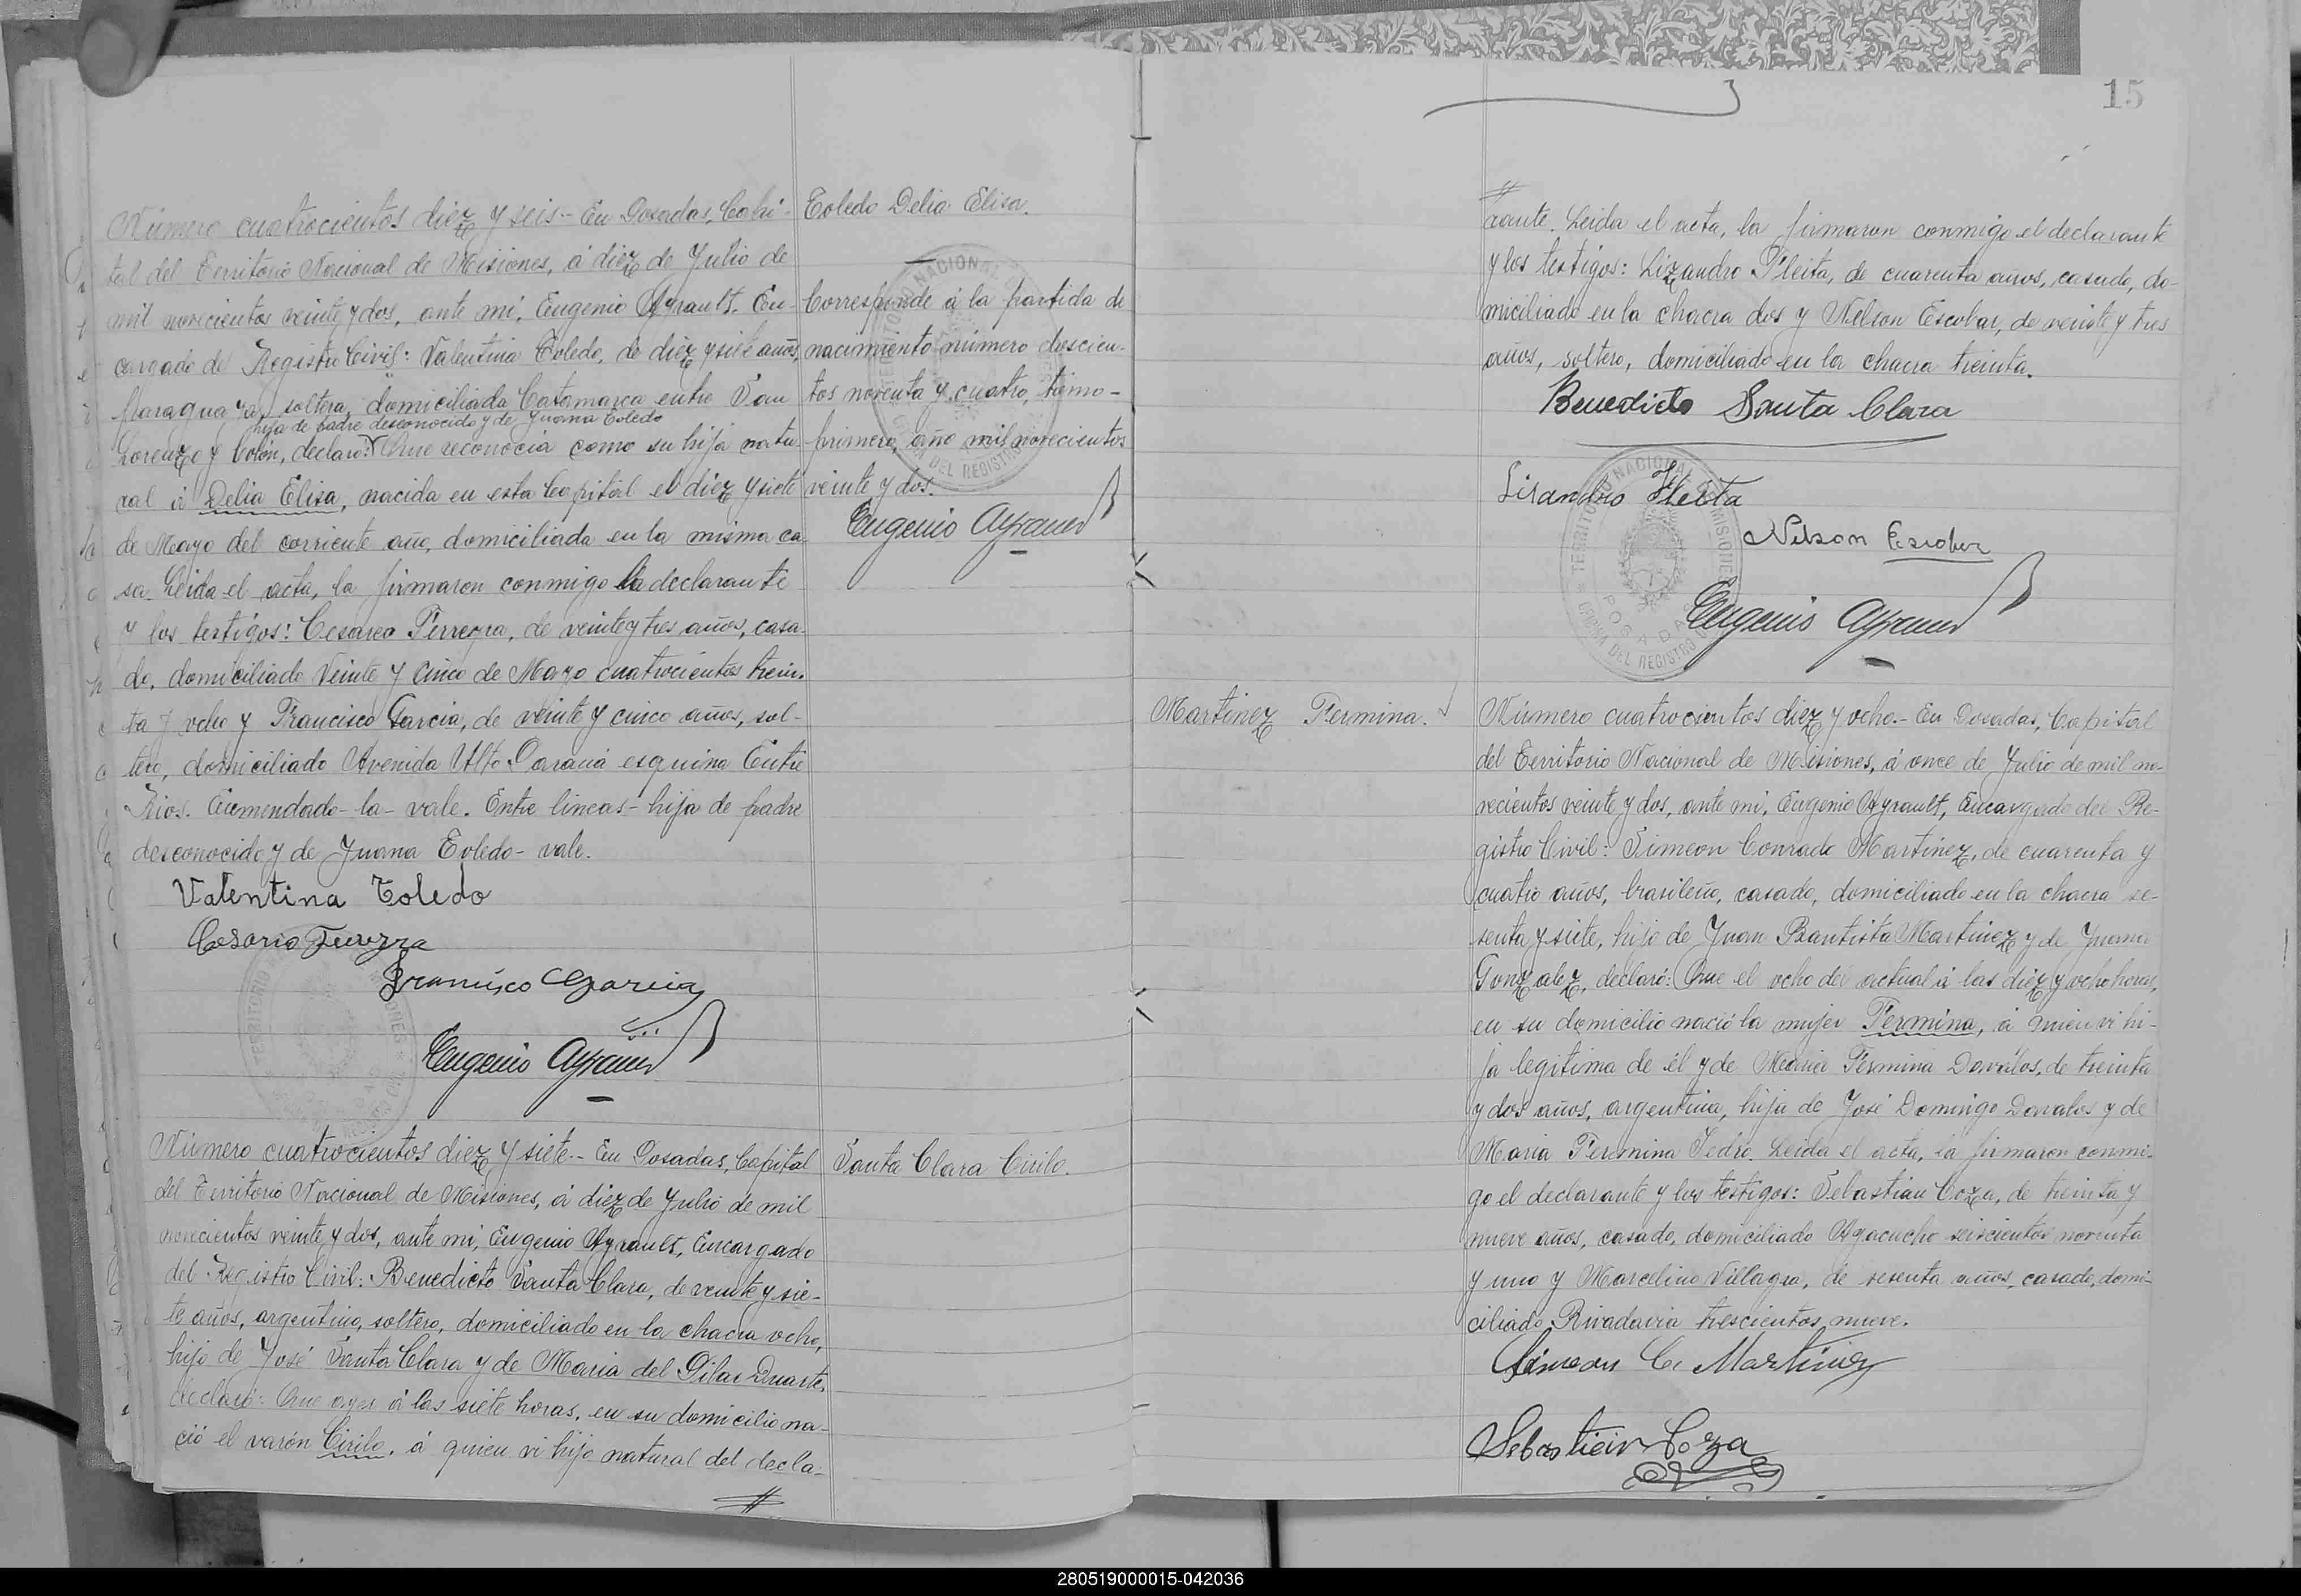 Número cuatrocientos diez y seis.- En Posadas, Capi-
tal del Territorio Nacional de Misiones, á diez de Julio de
mil novecientos veinte y dos, ante mí, Eugenio Ayrault, En-
cargado del Registro Civil: Valentina Toledo, de diez y siete años,
paraguaya, soltera, domiciliada Catamarca entre San
hija de padre desconocido y de Juana Toledo
Lorenzo y Colón, declaró: Que reconocia como su hija natu-
ral á Delia Elisa, nacida en esta Capital el diez y siete
de Mayo del corriente año, domiciliada en la misma ca-
sa. Leida el acta, la firmaron conmigo la declarante
y los testigos: Cesareo Ferreyra, de veinte y tres años, casa-
do, domiciliado Veinte y Cinco de Mayo cuatrocientos trein-
ta y ocho y Francisco Garcia, de veinte y cinco años, sol-
tero, domiciliado Avenida Alto Paraná esquina Entre
Rios. Enmendado-la-vale. Entre lineas-hija de padre
desconocido y de Juana Toledo-vale.
Valentina Toledo
Francisco Garcia
Eugenio Ayrault
Toledo Delia Elisa.
Corresponde á la partida de
nacimiento número doscien-
tos noventa y cuatro, tomo-
primero, año mil novecientos
veinte y dos.
Eugenio Ayrault
Número cuatrocientos diez y siete.- En Posadas, Capital
del Territorio Nacional de Misiones, á diez de Julio de mil
novecientos veinte y dos, ante mí, Eugenio Ayrault, Encargado
del Registro Civil: Benedicto Santa Clara, de veinte y sie-
te años, argentino, soltero, domiciliado en la chacra ocho,
hijo de José Santa Clara y de Maria del Pilar Duarte,
declaró: Que ayer á las siete horas, en su domicilio na-
ció el varón Cirilo, á quien vi hijo natural del decla-
Santa Clara Cirilo.
15
rante. Leida el acta, la firmaron conmigo el declarante
y los testigos: Lizandro Fleita, de cuarenta años, casado, do-
miciliado en la chacra dos y Nelson Escobar, de veinte y tres
años, soltero, domiciliado en la chacra treinta.
Benedicto Santa Clara
Lisandro Fleita
Nelson Escobar
Eugenio Ayrault
TERRITORIO NACIONAL DE MISIONES
POSADAS
OFICINA DEL REGISTRO
Martinez Fermina.
Número cuatrocientos diez y ocho.- En Posadas, Capital
del Territorio Nacional de Misiones, á once de Julio de mil no-
vecientos veinte y dos, ante mí, Eugenio Ayrault, Encargado del Re-
gistro Civil: Simeon Conrado Martinez, de cuarenta y
cuatro años, brasileño, casado, domiciliado en la chacra se-
senta y siete, hijo de Juan Bautista Martinez y de Juana
Gonzalez, declaró: Que el ocho del actual á las diez y ocho horas,
en su domicilio nació la mujer Fermina, á quien vi hi-
ja legitima de él y de Maria Fermina Dávalos, de treinta
y dos años, argentina, hija de José Domingo Davalos y de
Maria Fermina Pedro. Leida el acta, la firmaron conmi-
go el declarante y los testigos: Sebastian Coza, de treinta y
nueve años, casado, domiciliado Ayacucho seiscientos noventa
y uno y Marcelino Villagra, de sesenta años, casado, domi-
ciliado Rivadavia trescientos nueve.
Simeon C. Martinez
Sebastian Coza
280519000015-042036